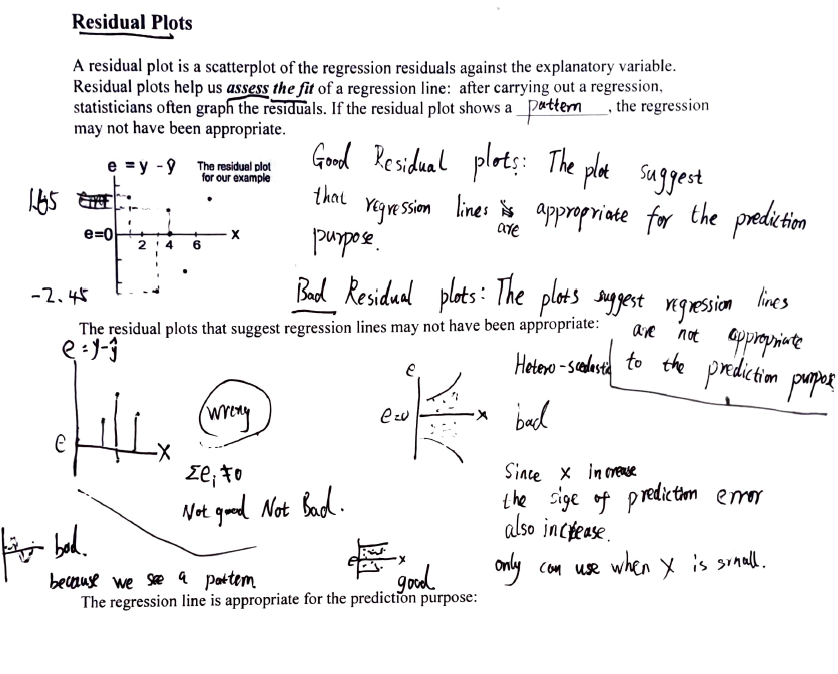 Residual Plots
A residual plot is a scatterplot of the regression residuals against the explanatory variable.
Residual plots help us assess the fit of a regression line: after carrying out a regression,
statisticians often graph the residuals. If the residual plot shows a pattern, the regression
may not have been appropriate.
e = y - ŷ
The residual plot
for our example
1.65
e=0
2 4 6
x
-2.45
Good Residual plots: The plot suggest
that regression lines are appropriate for the prediction
purpose.
Bad Residual plots: The plots suggest regression lines
are not appropriate
to the prediction purpose
The residual plots that suggest regression lines may not have been appropriate:
e = y-ŷ
e
x
wrong
Σei ≠0
Not good Not Bad.
e
e=0
x
Hetero-scedastic
bad
Since x increase
the size of prediction error
also increase.
only can use when x is small.
bad.
because we see a pattern
e
x
good
The regression line is appropriate for the prediction purpose: